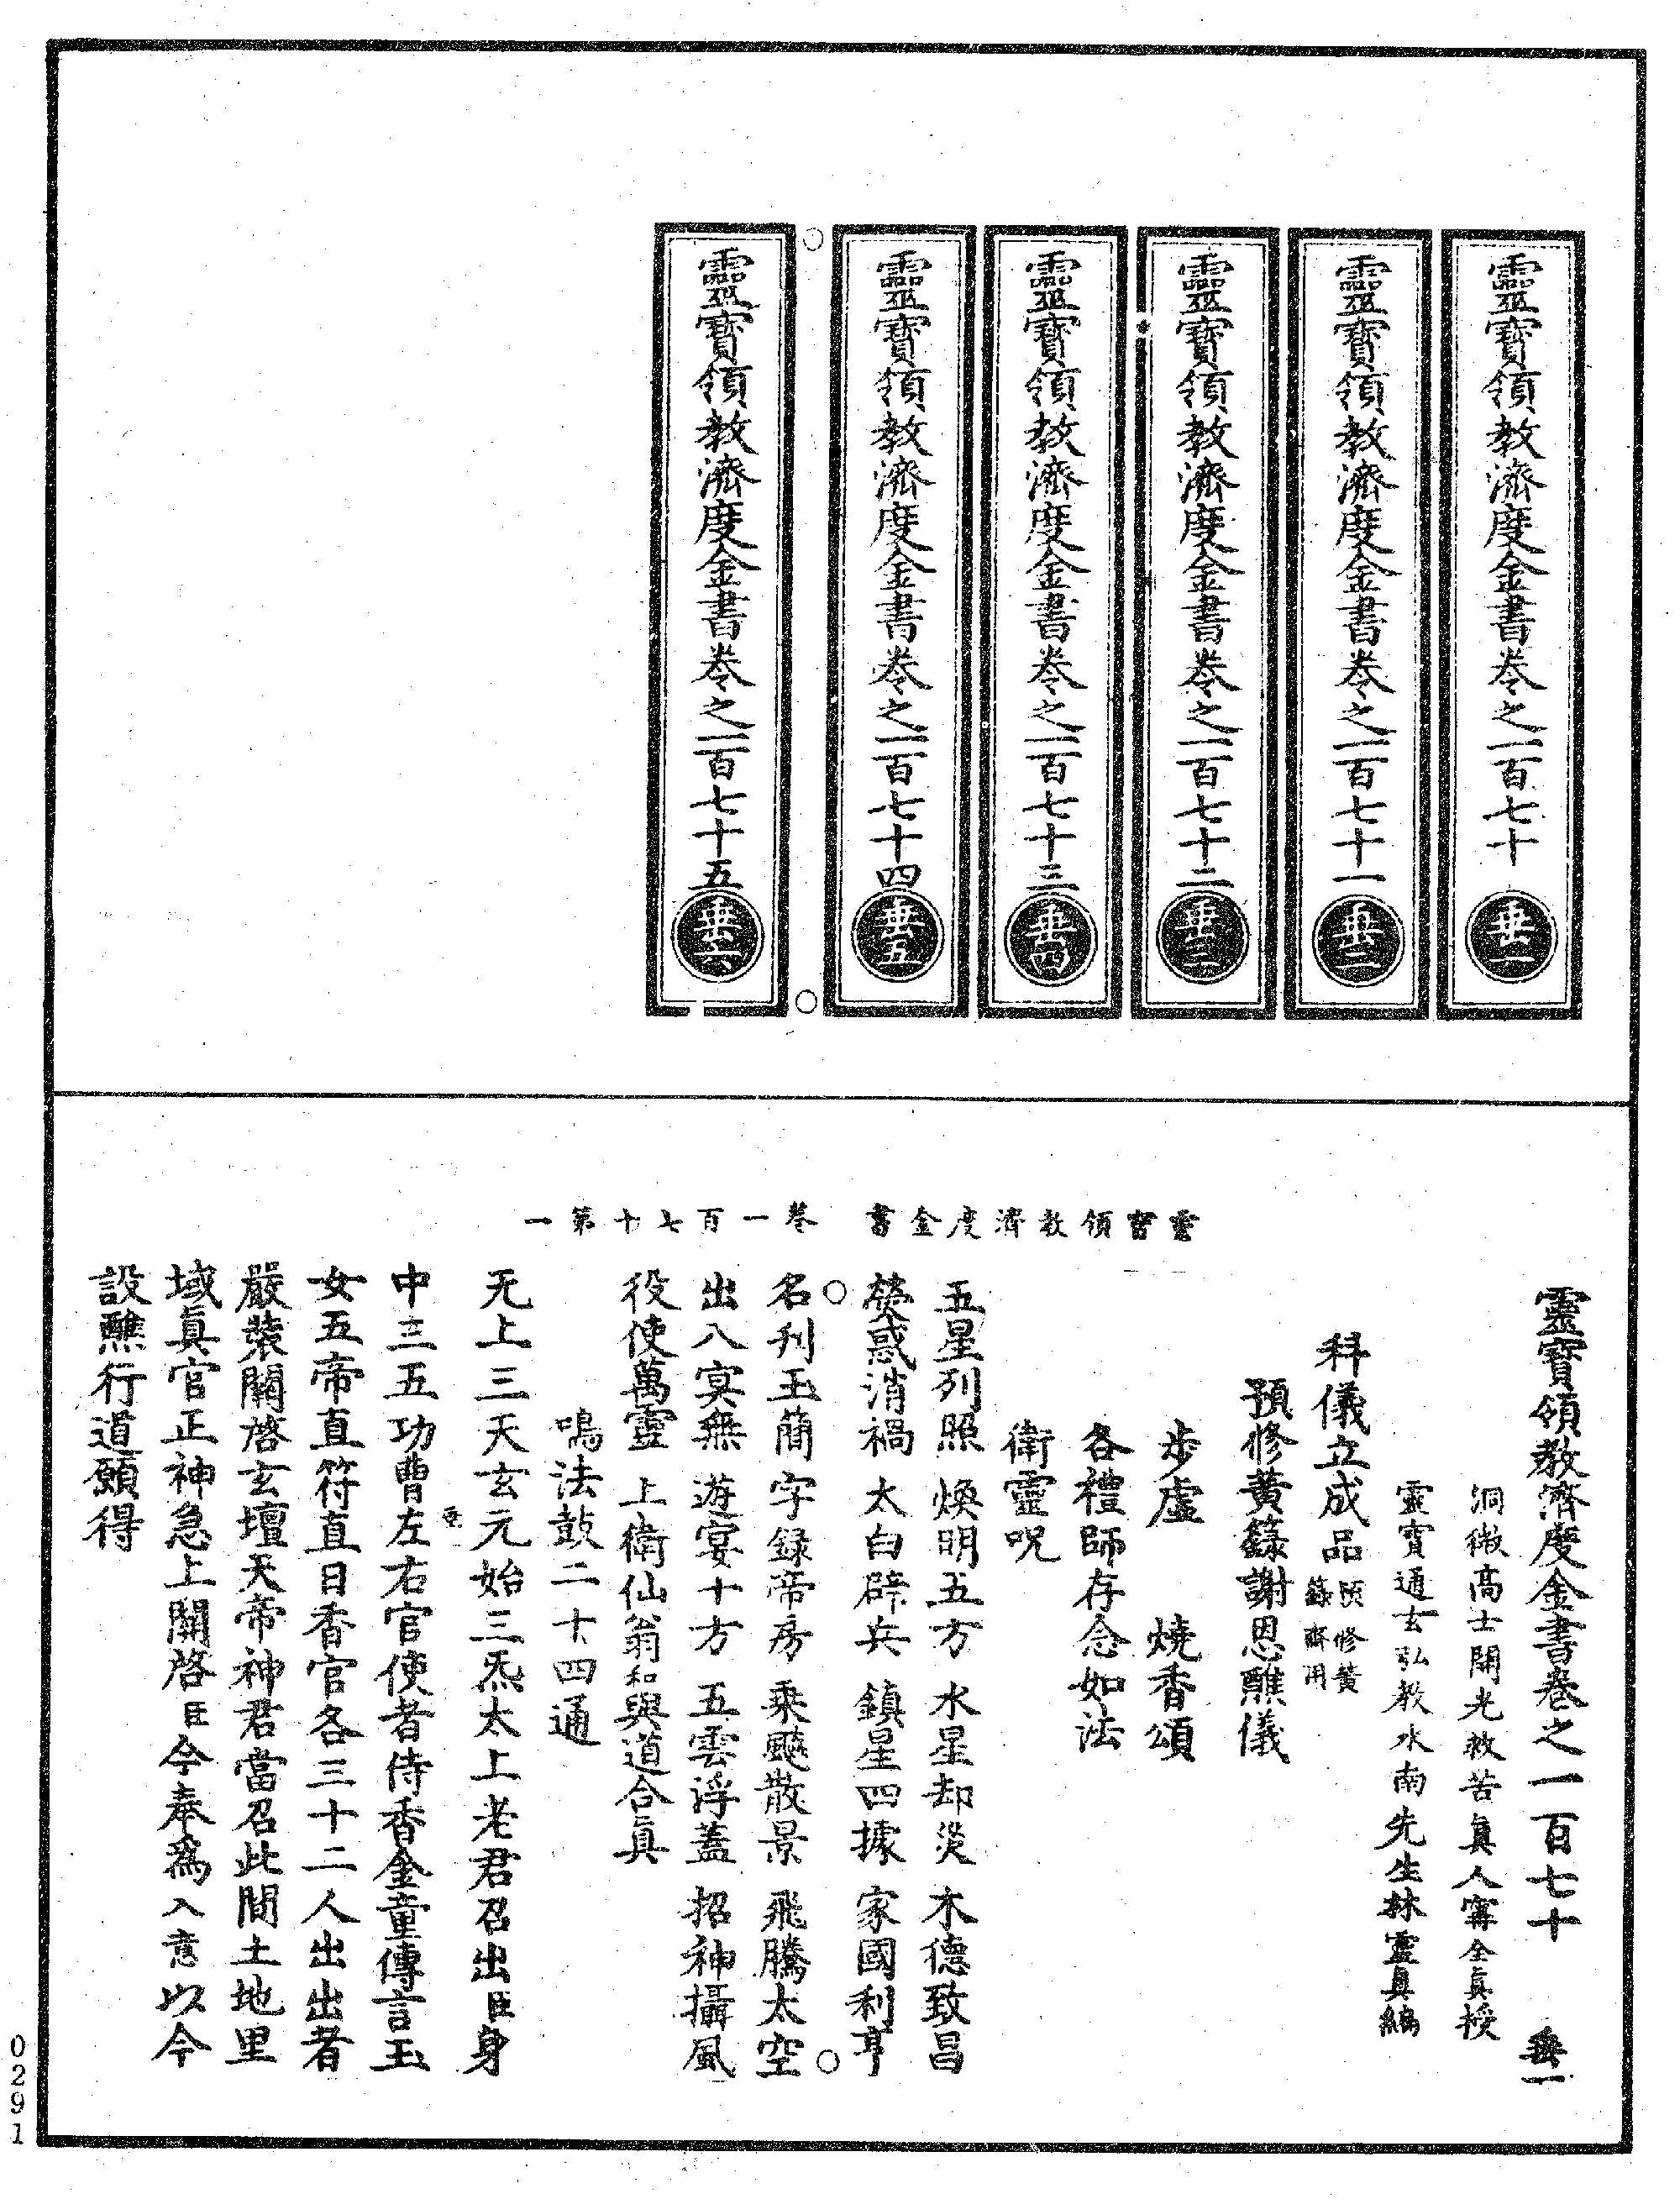 靈寶領教濟度金書卷之一百七十 垂一
靈寶領教濟度金書卷之一百七十一 垂二
靈寶領教濟度金書卷之一百七十二 垂三
靈寶領教濟度金書卷之一百七十三 垂四
靈寶領教濟度金書卷之一百七十四 垂五
靈寶領教濟度金書卷之一百七十五 垂六
靈寶領教濟度金書 卷一百七十第一
靈寶領教濟度金書卷之一百七十 垂一
洞微高士開光救苦真人甯全真授
靈寶通玄弘教水南先生林靈真編
科儀立成品 預修黃籙齋用
預修黃籙謝恩醮儀
步虛 燒香頌
各禮師存念如法
衛靈呪
五星列照 煥明五方 水星却災 木德致昌
熒惑消禍 太白辟兵 鎮星四據 家國利亨
名刋玉簡 字録帝房 乘飈散景 飛騰太空
出八冥無 遊宴十方 五雲浮蓋 招神攝風
役使萬靈 上衛仙翁 和與道合眞
鳴法鼓二十四通
无上三天玄元始三炁太上老君召出臣身
中三五功曹左右官使者侍香金童傳言玉
女五帝直符直日香官各三十二人出出者
嚴裝關啓玄壇天帝神君當召此間土地里
域眞官正神急上關啓臣今奉爲入意以今
設醮行道願得
0291